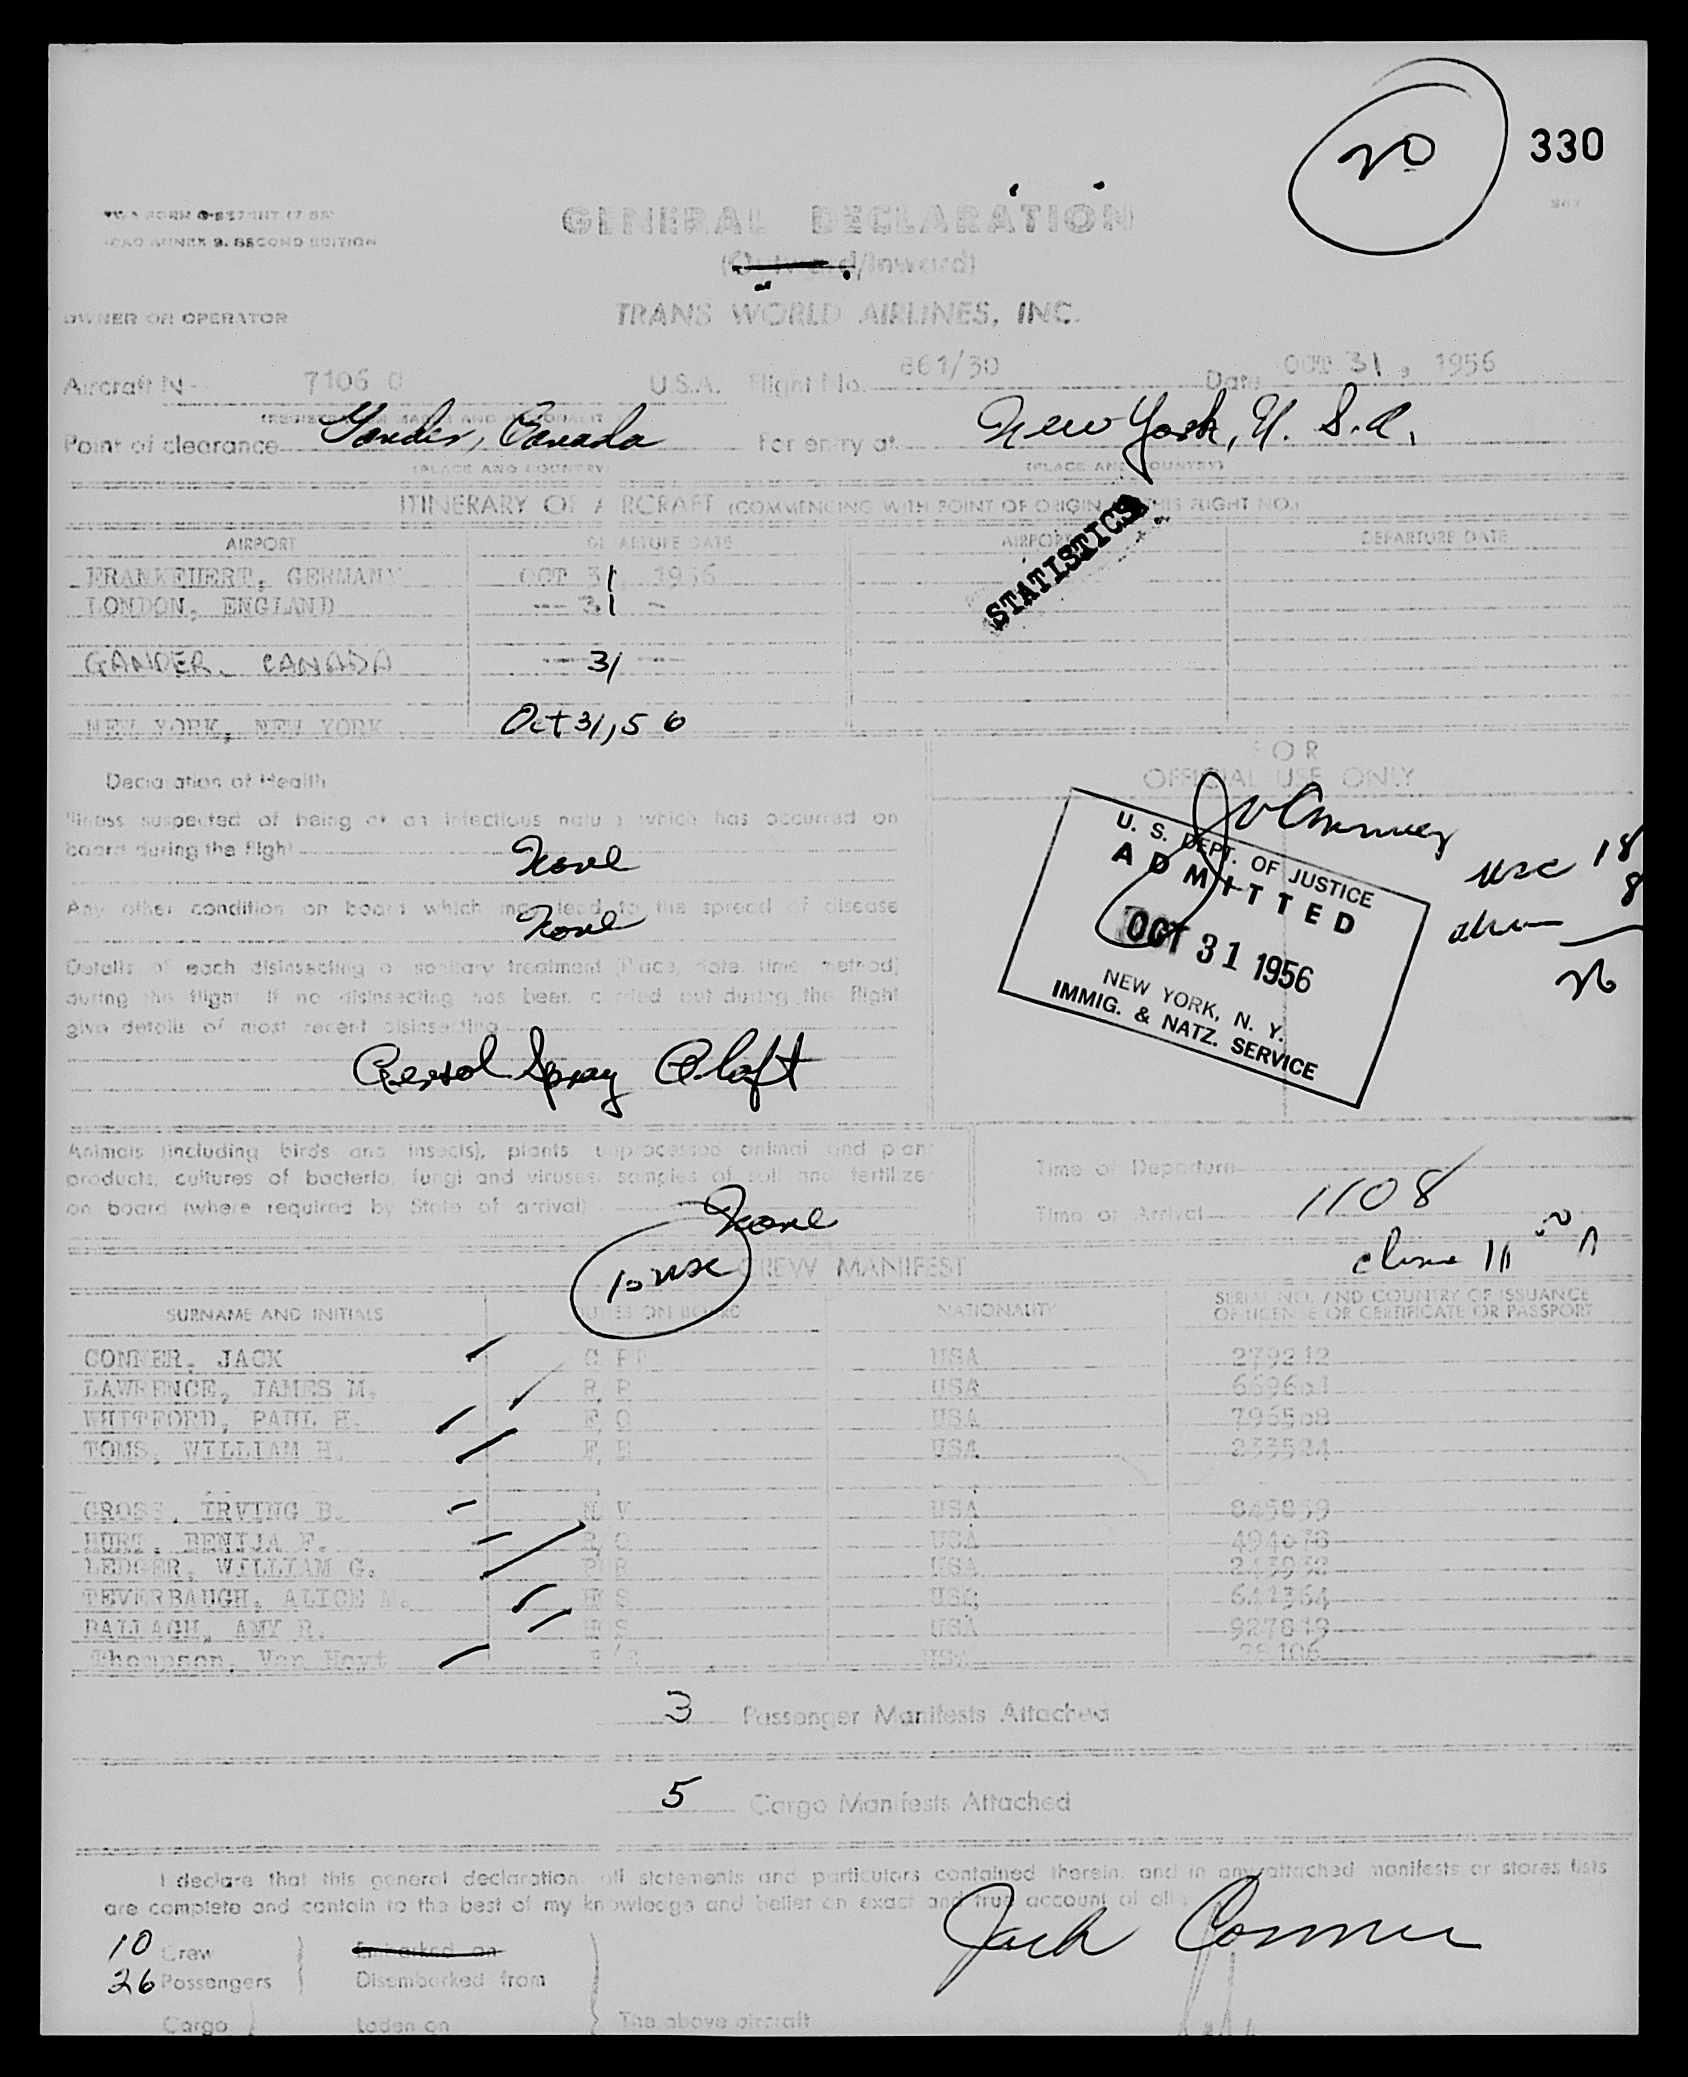 330
ICAO ANNEX 9, SECOND EDITION
GENERAL DECLARATION
(Outward/Inward)
OWNER OR OPERATOR
TRANS WORLD AIRLINES, INC.
Aircraft N- 7106 C U.S.A. Flight No. 861/30 Date OCT 31, 1956
(REGISTRATION MARKS AND NATIONALITY)
Point of clearance Gander, Canada For entry at New York, U. S. A.
(PLACE AND COUNTRY) (PLACE AND COUNTRY)
ITINERARY OF AIRCRAFT (COMMENCING WITH POINT OF ORIGIN OF THIS FLIGHT NO.)
AIRPORT DEPARTURE DATE AIRPORT DEPARTURE DATE
FRANKFUERT, GERMANY OCT 31 1956
LONDON, ENGLAND -- 31 -
STATISTICS
GANDER, CANADA -- 31 --
NEW YORK, NEW YORK Oct 31, 56
FOR
OFFICIAL USE ONLY
Declaration of Health
Illness suspected of being of an infectious nature which has occurred on
board during the flight None
Any other condition on board which may lead to the spread of disease
None
Details of each disinsecting or sanitary treatment (Place, date, time, method)
during the flight. If no disinsecting has been carried out during the flight
give details of most recent disinsecting
Aersol Spray Aloft
U. S. DEPT. OF JUSTICE
ADMITTED
OCT 31 1956
NEW YORK, N. Y.
IMMIG. & NATZ. SERVICE
usc 18
8
26
Animals (including birds and insects), plants, unprocessed animal and plant
products, cultures of bacteria, fungi and viruses, samples of soil and fertilizer
on board (where required by State of arrival) None
Time of Departure
Time of Arrival 1108
10 usc
CREW MANIFEST
SURNAME AND INITIALS DUTIES ON BOARD NATIONALITY SERIAL NO. AND COUNTRY OF ISSUANCE
OF LICENSE OR CERTIFICATE OR PASSPORT
CONNER, JACK USA 279212
LAWRENCE, JAMES M. USA
WHITFORD, PAUL H. USA
TOMS, WILLIAM H. USA
GROSS, IRVING B. USA
HURT, BENIJA F. USA
LEDGER, WILLIAM G. USA
TEVERBAUGH, ALICE USA
BALLAGH, AMY R. H S USA
Thompson, Van Hoyt USA
3 Passenger Manifests Attached
5 Cargo Manifests Attached
I declare that this general declaration, all statements and particulars contained therein, and in any attached manifests or stores lists
are complete and contain to the best of my knowledge and belief an exact and true account of all
Jack Conner
10 Crew Embarked on
26 Passengers Disembarked from
Cargo Laden on The above aircraft